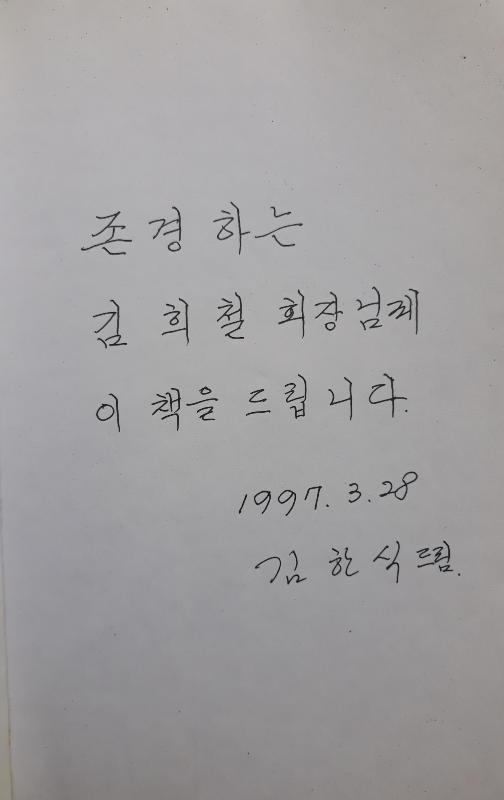 존경하는
김희철 회장님께
이 책을 드립니다.
1997. 3. 28
김한식 드림.